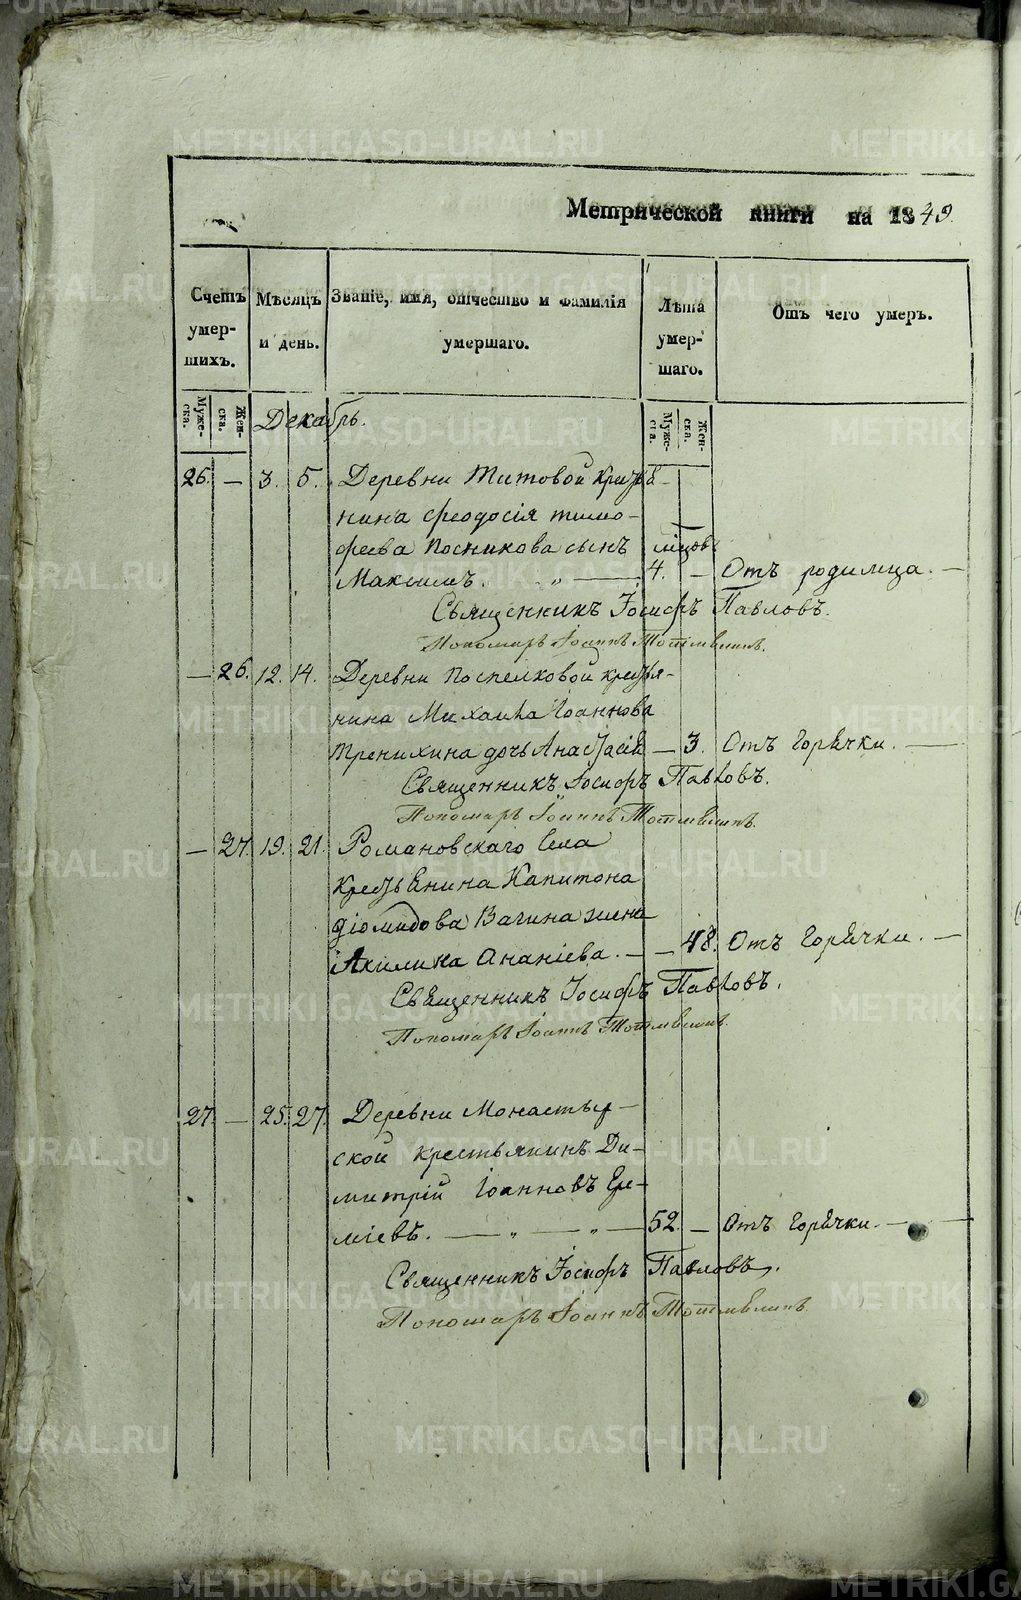 Метрической книги на 1849.
Счетъ умер-шихъ.
Мѣсяцъ и день.
Званіе, имя, отчество и фамилія умершаго.
Лѣта умер-шаго.
Отъ чего умеръ.
Муже-ска. Жен-ска.
Декабрь.
Муже-ска. Жен-ска.
26. — 3. 5. Деревни Титовой крестья-
нина Феодосія Тимо-
феева Посникова сынъ мѣсяцовъ
Максимъ. „ — 4. — Отъ родимца. —
Священникъ Іосифъ Павловъ.
Пономарь Іоаннъ
— 26. 12. 14. Деревни Поспелковой крестья-
нина Михаила Іоаннова
Тренихина дочь Анастасія — 3. Отъ горячки. —
Священникъ Іосифъ Павловъ.
Пономарь Іоаннъ
— 27. 19. 21. Романовскаго села
крестьянина Капитона
Діомидова Вагина жена
Акилина Ананіева. — — 48. Отъ горячки. —
Священникъ Іосифъ Павловъ.
Пономарь Іоаннъ
27. — 25. 27. Деревни Монастыр-
ской крестьянинъ Ди-
митрій Іоанновъ Ере-
міевъ. — „ — „ — 52. — Отъ горячки. —
Священникъ Іосифъ Павловъ.
Пономарь Іоаннъ
METRIKI.GASO-URAL.RU